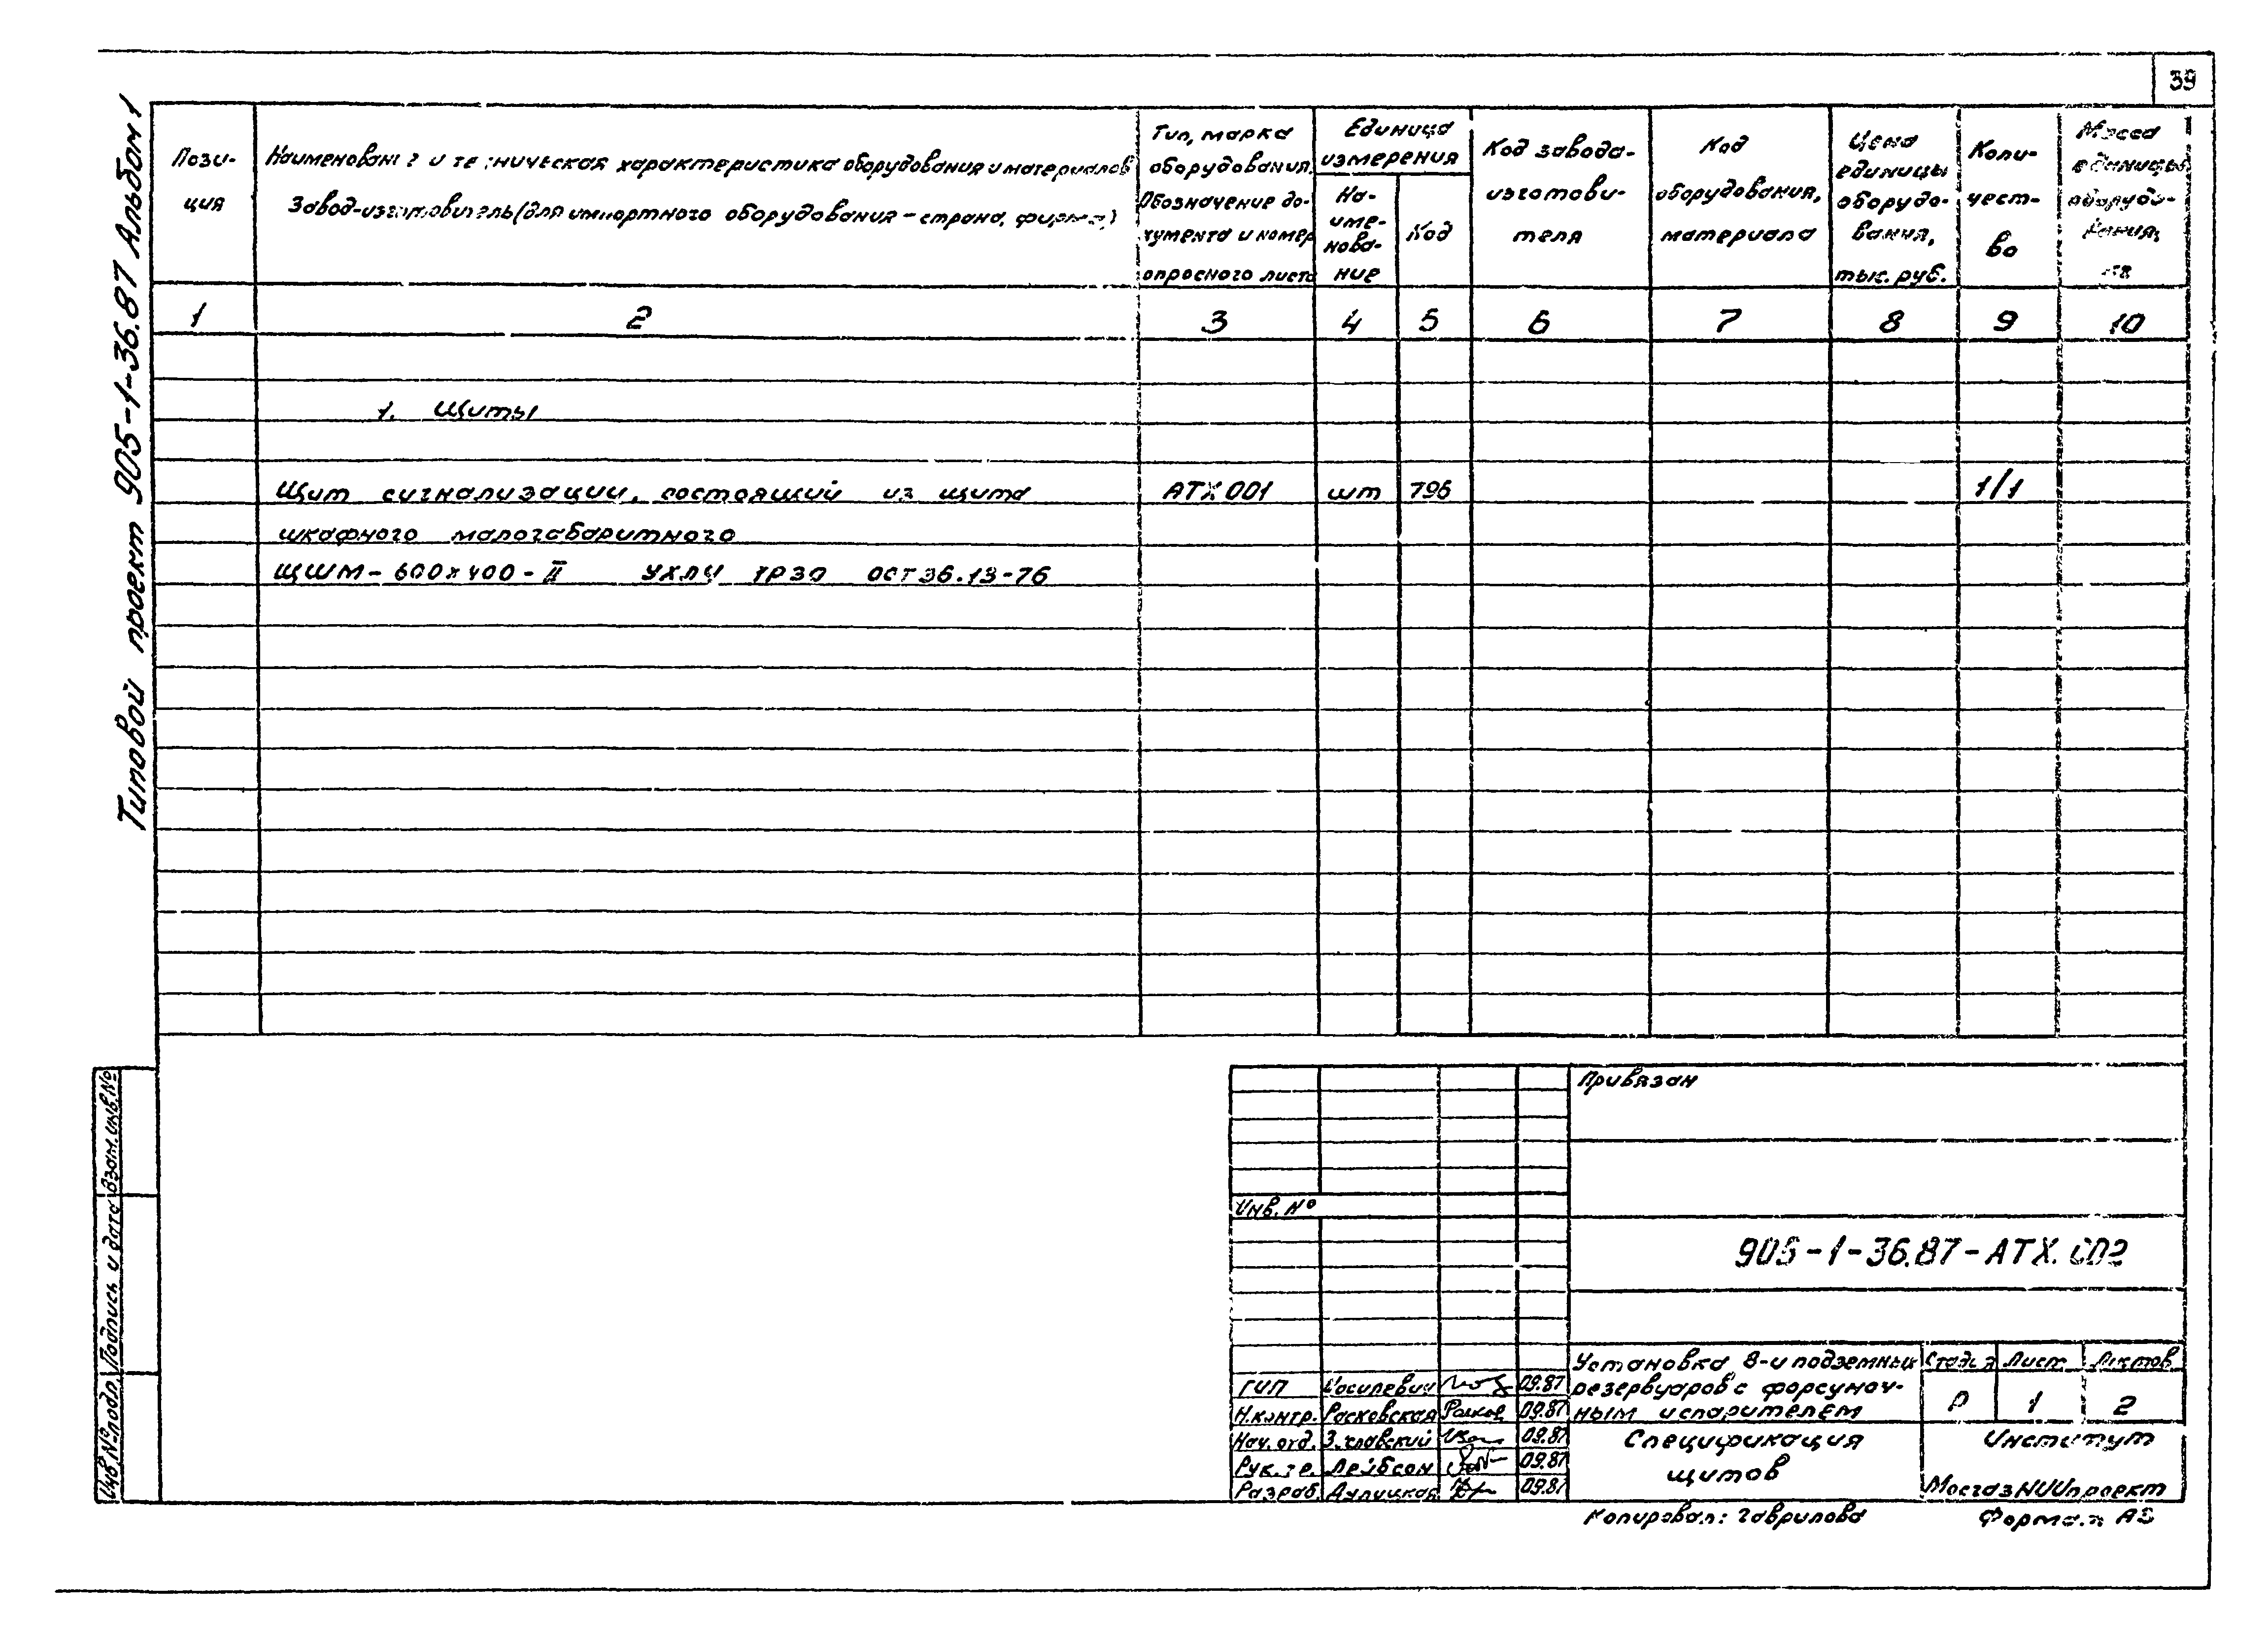 39
Типовой проект 905-1-36.87 Альбом 1
Пози-
ция
Наименовани и техническая характеристика оборудования и материалов
Завод-изготовитель (для импортного оборудования - страна, фирма)
Тип, марка
оборудования.
Обозначение до-
кумента и номер
опросного листа
Единица
измерения
На-
име-
нова-
ние
Код
Код завода-
изготови-
теля
Код
оборудования,
материала
Цена
единицы
оборудо-
вания,
тыс. руб.
Коли-
чест-
во
Масса
единицы
оборудо-
вания,
кг
1 2 3 4 5 6 7 8 9 10
1. Щиты
Щит сигнализации, состоящий из щита АТХ 001 шт 796 1/1
шкафного малогабаритного
ЩШМ-600х400-II УХЛ4 IP30 ОСТ36.13-76
Взам. инв. №
Подпись и дата
Инв. № подл.
Привязан
Инв. №
905-1-36.87-АТХ.СО2
Установка 8-и подземных
резервуаров с форсуноч-
ным испарителем
Стадия Лист Листов
Р 1 2
ГИП 09.87
Н.контр. Расковская 09.87
Нач. отд. 09.87
Рук. гр. Лейбсон 09.87
Разраб. 09.87
Спецификация
щитов
Институт
МосгазНИИпроект
Копировал: Гаврилова
Формат А3